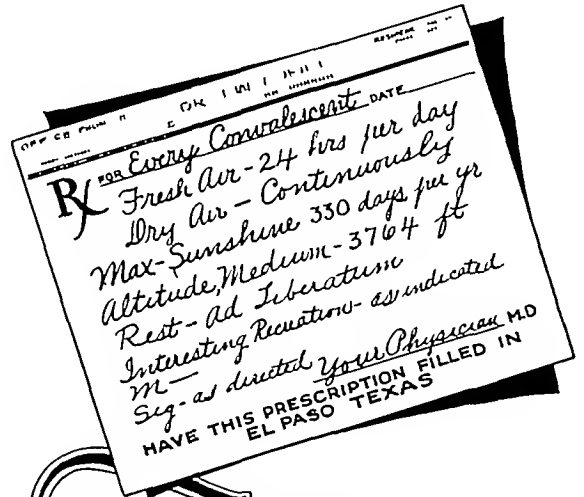 FOR Every Convalescent DATE
Rx Fresh Air - 24 hrs per day
Dry Air - Continuously
Max - Sunshine 330 days per yr
Altitude, Medium - 3764 ft
Rest - ad Liberatum
Interesting Recreation - as indicated
M—
Sig - as directed Your Physician M.D
HAVE THIS PRESCRIPTION FILLED IN
EL PASO TEXAS